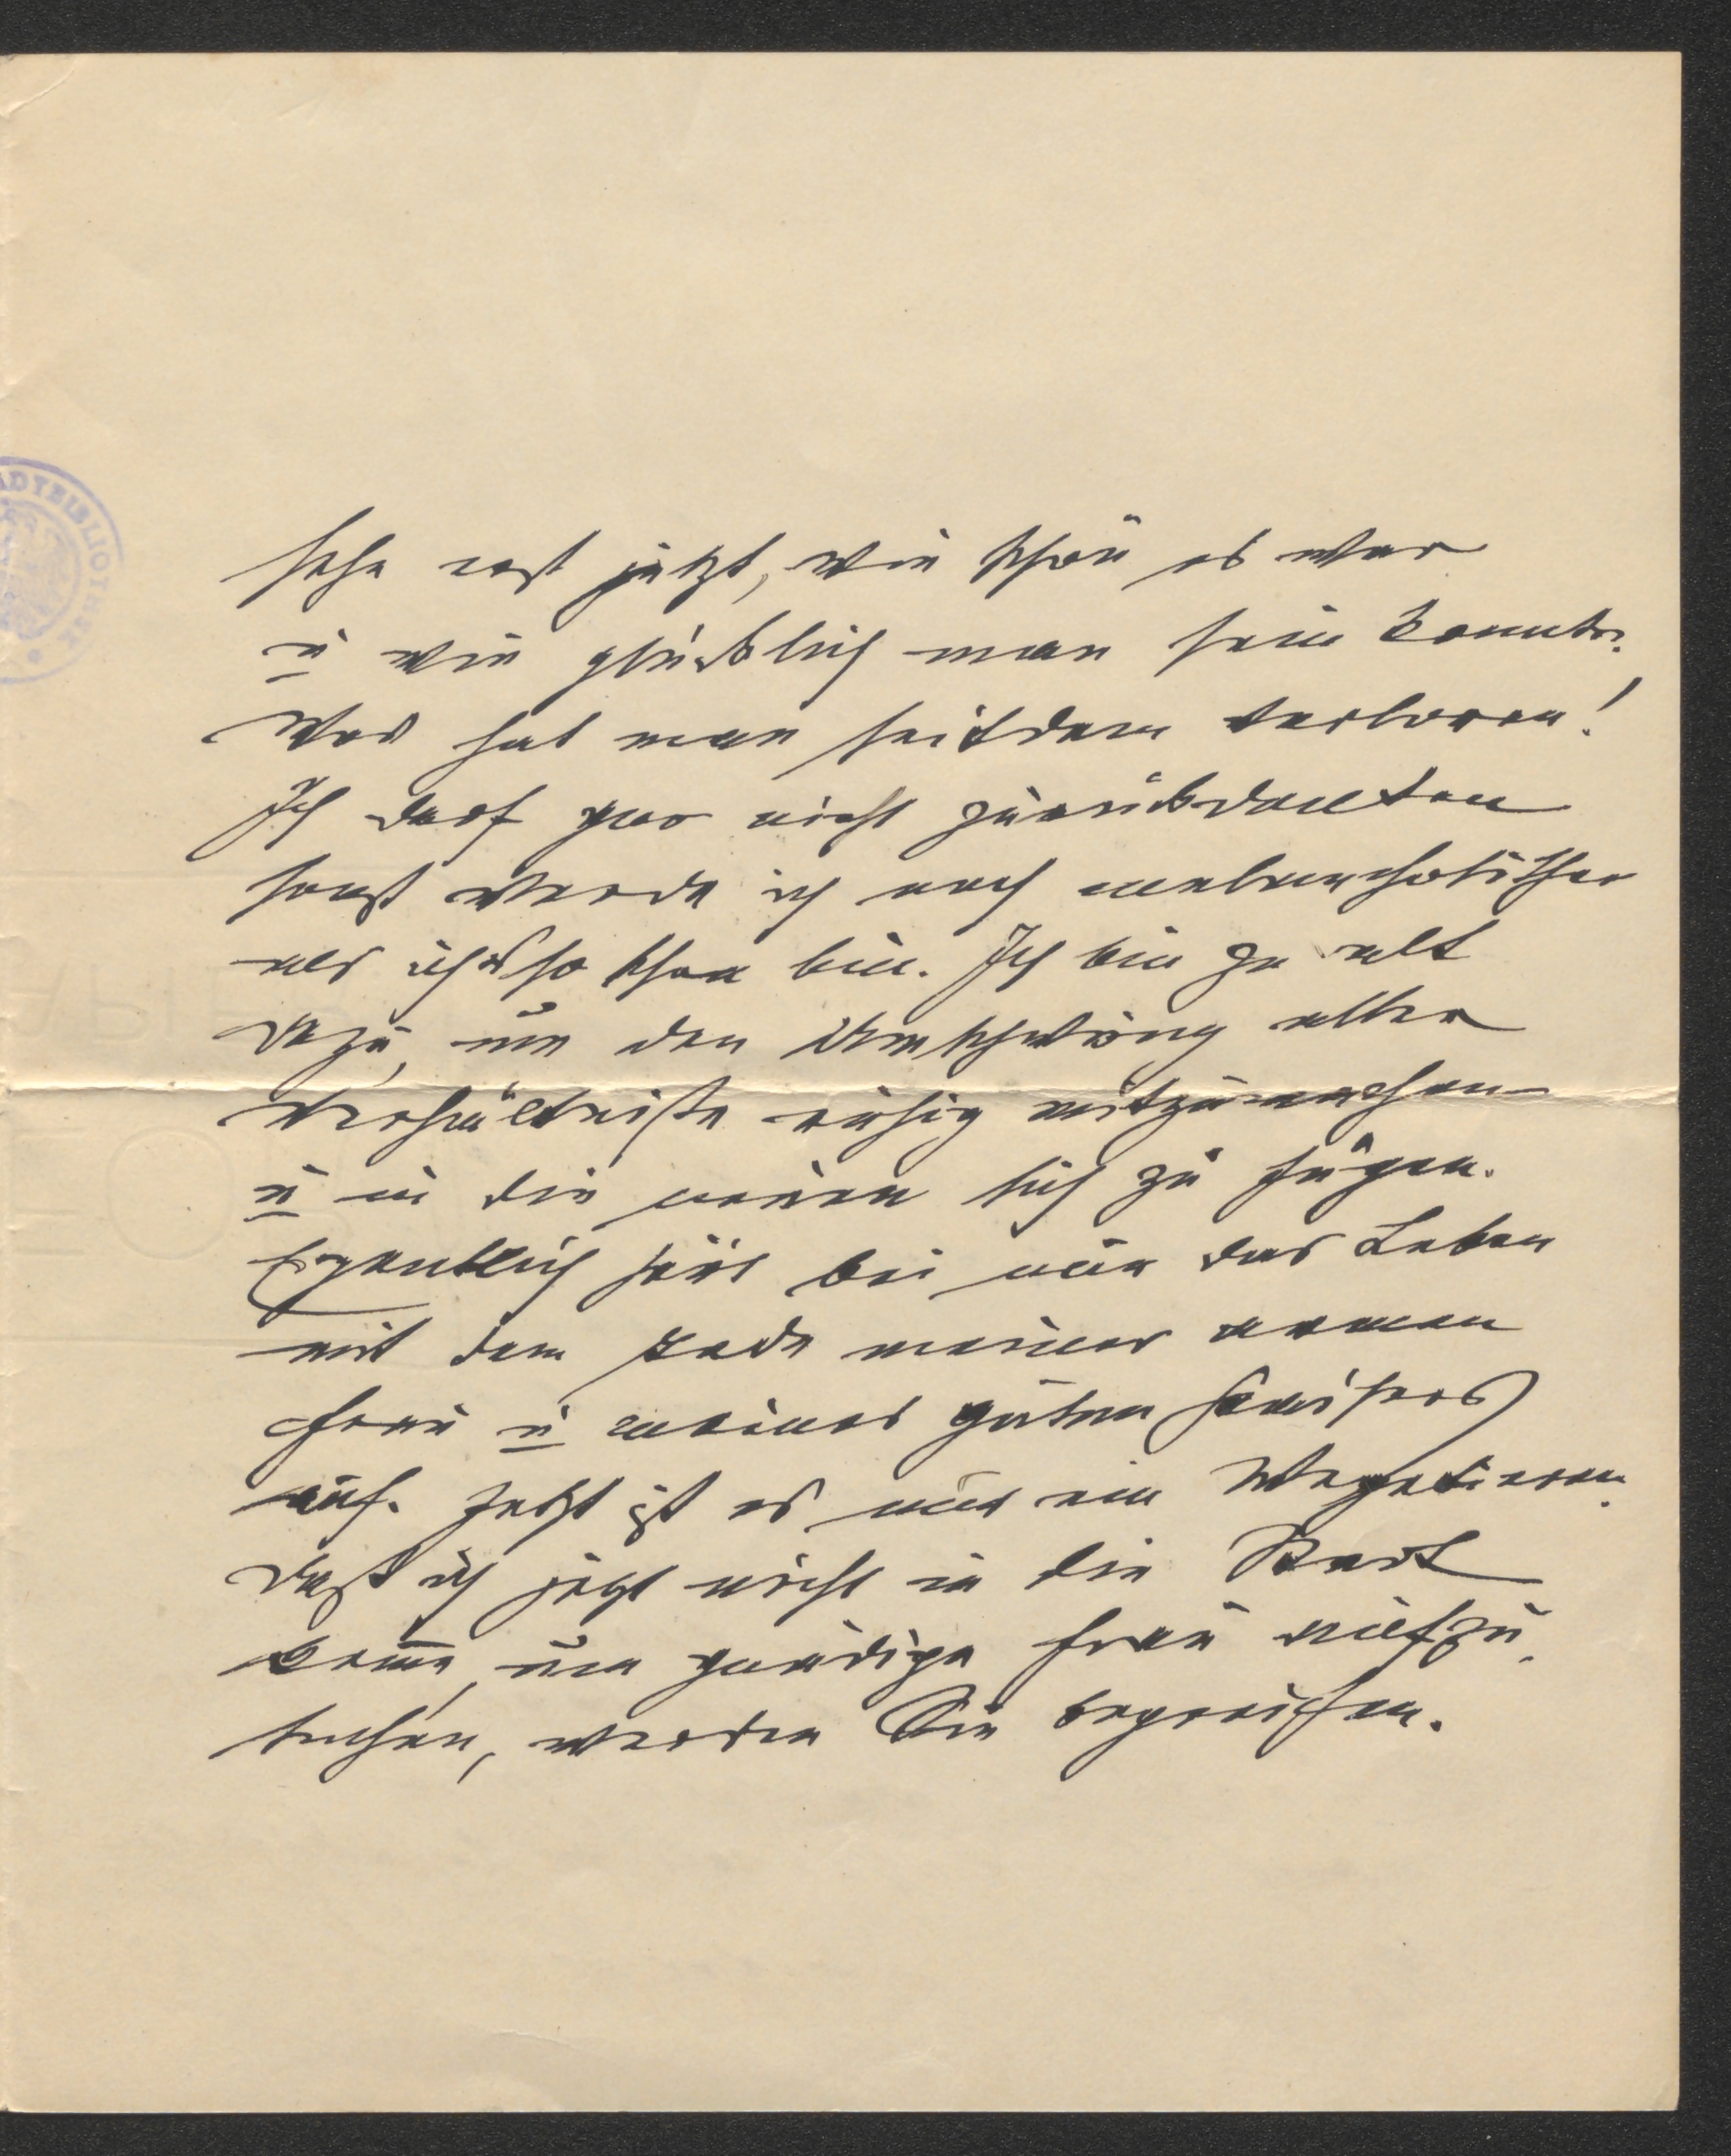 sehe erst jetzt, wie schön es war
u wie glücklich man sein konnte.
Was hat man seitdem verloren!
Ich darf gar nicht zurückdenken
sonst werde ich noch melancholischer
als ich's so schon bin. Ich bin zu alt
dazu, um den Umschwung aller
Verhältniße ruhig mitzumachen
u in die neuen sich zu fügen.
Eigentlich hört bei mir das Leben
mit dem Tode meiner armen
Frau u meines guten Kaisers
auf. Jetzt ist es nur ein Vegetieren.
Daß ich jetzt nicht in die Stadt
kom̅e, um gnädige Frau aufzu
suchen, werden Sie begreifen.
ADTBIBLIOTHEK